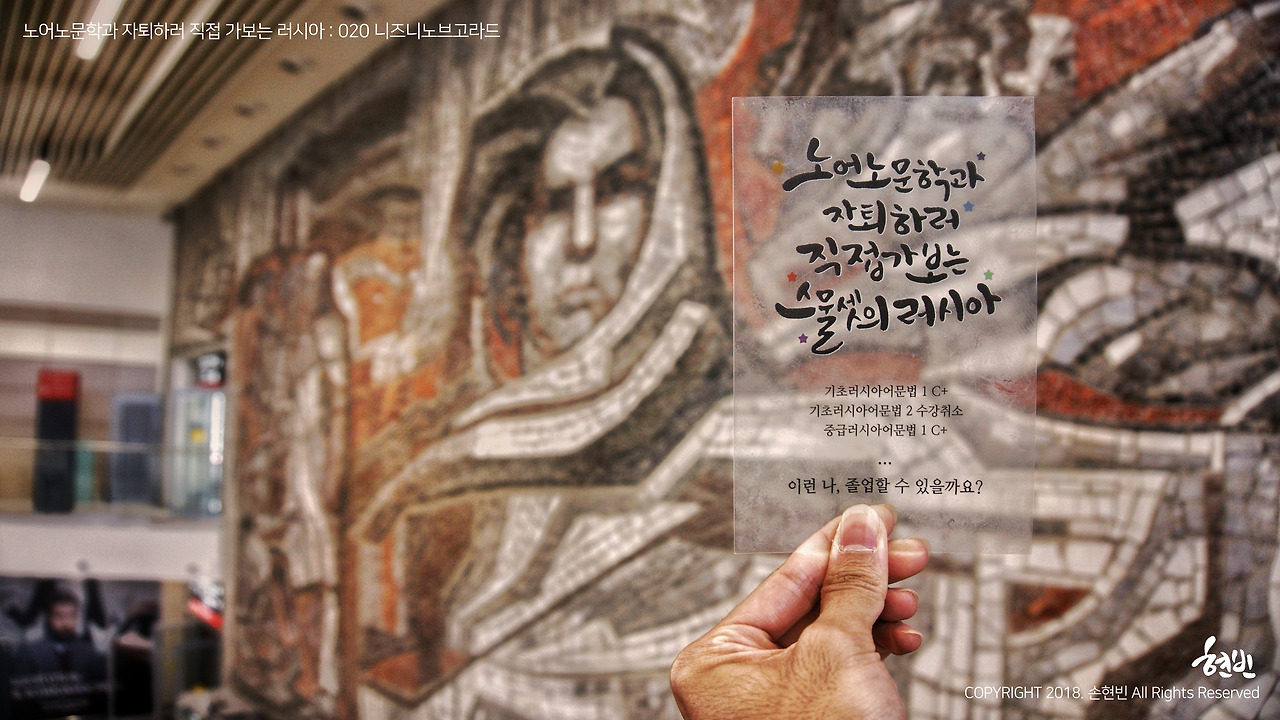 노어노문학과 자퇴하러 직접 가보는 러시아 : 020 니즈니노브고라드
노어노문학과
자퇴하러
직접가보는
스물셋의 러시아
기초러시아어문법 1 C+
기초러시아어문법 2 수강취소
중급러시아어문법 1 C+
...
이런 나, 졸업할 수 있을까요?
현빈
COPYRIGHT 2018. 손현빈 All Rights Reserved